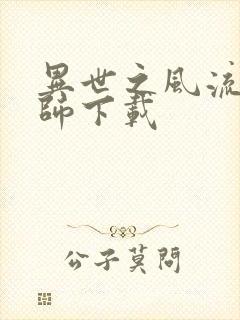 異世之風流
師下載
公子莫問